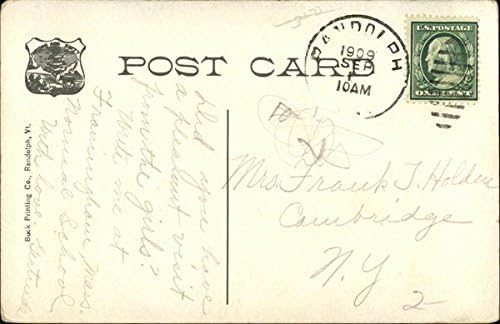 POST CARD
RANDOLPH
1909
SEP
10AM
U.S. POSTAGE
ONE CENT
Did you have
a pleasant visit
from the girls?
Write me at
Framingham Mass.
Normal School
With love Gertrude
Mrs Frank T. Holden
Cambridge
N.Y.
2
Buck Printing Co., Randolph, Vt.